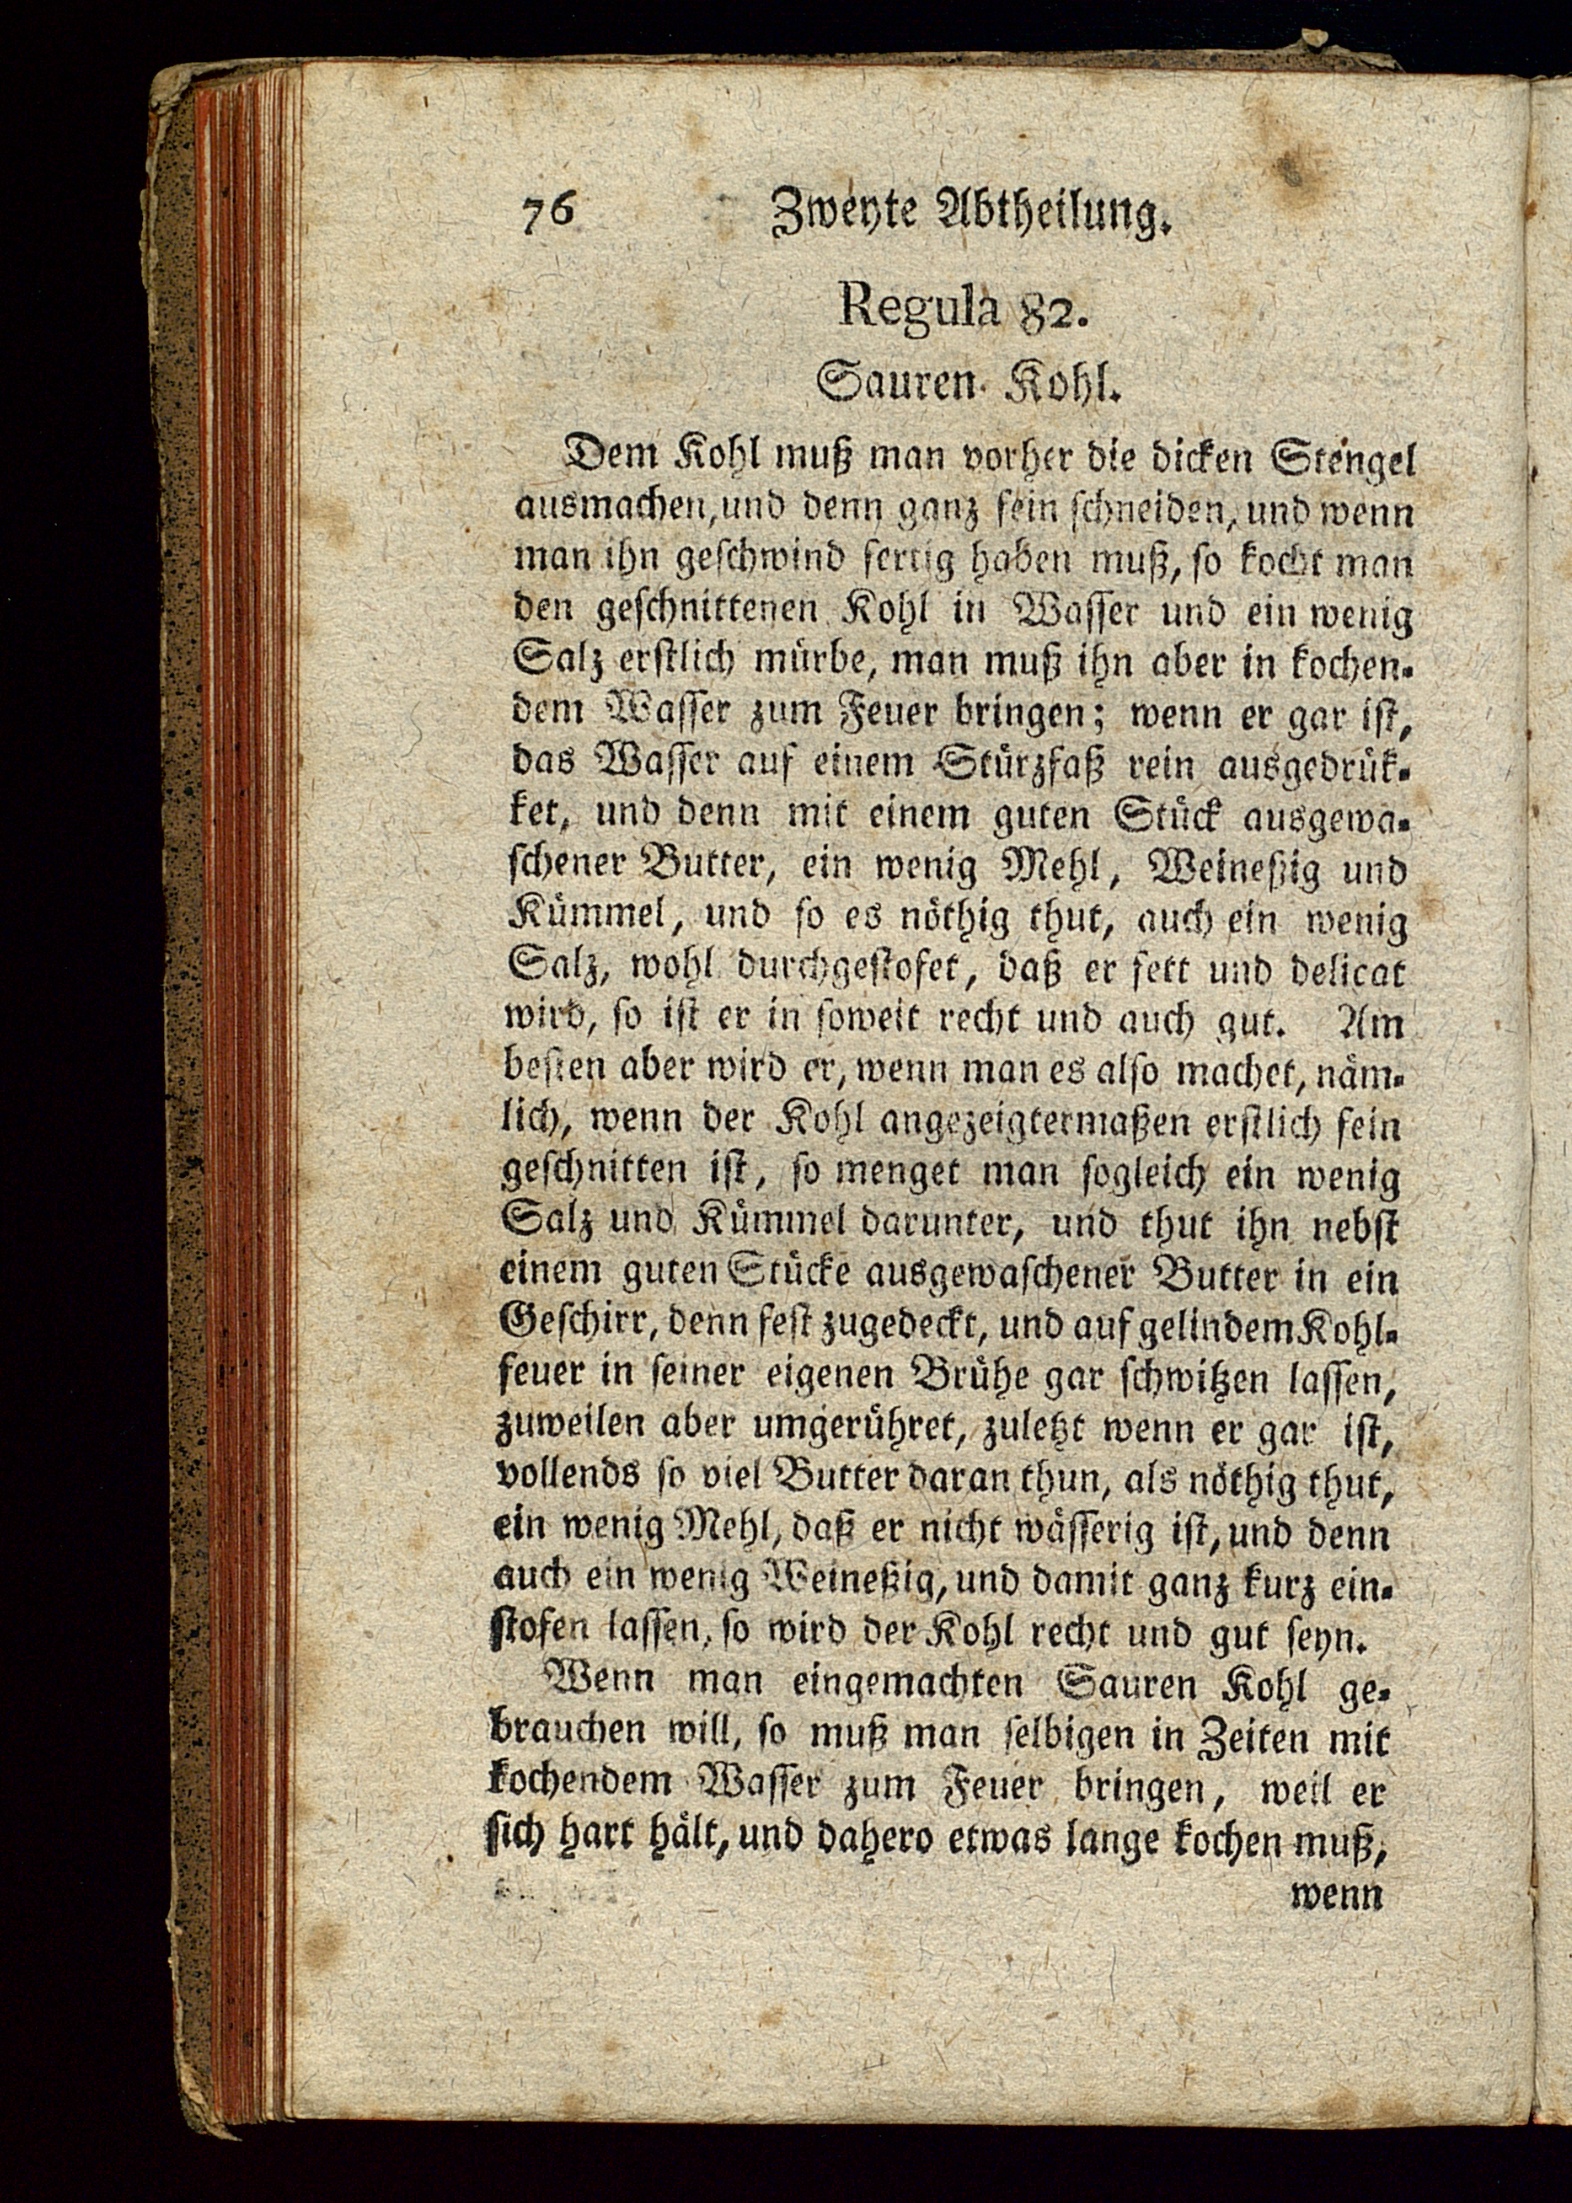 76 Zweyte Abtheilung.
Regula 82.
Sauren Kohl.
Dem Kohl muß man vorher die dicken Stengel
ausmachen, und denn ganz fein schneiden, und wenn
man ihn geschwind fertig haben muß, so kocht man
den geschnittenen Kohl in Wasser und ein wenig
Salz erstlich mürbe, man muß ihn aber in kochen-
dem Wasser zum Feuer bringen; wenn er gar ist,
das Wasser auf einem Stürzfaß rein ausgedrük-
ket, und denn mit einem guten Stück ausgewa-
schener Butter, ein wenig Mehl, Weineßig und
Kümmel, und so es nöthig thut, auch ein wenig
Salz, wohl durchgestofet, daß er fett und delicat
wird, so ist er in soweit recht und auch gut. Am
besten aber wird er, wenn man es also machet, näm-
lich, wenn der Kohl angezeigtermaßen erstlich fein
geschnitten ist, so menget man sogleich ein wenig
Salz und Kümmel darunter, und thut ihn nebst
einem guten Stücke ausgewaschener Butter in ein
Geschirr, denn fest zugedeckt, und auf gelindem Kohl-
feuer in seiner eigenen Brühe gar schwitzen lassen,
zuweilen aber umgerühret, zuletzt wenn er gar ist,
vollends so viel Butter daran thun, als nöthig thut,
ein wenig Mehl, daß er nicht wässerig ist, und denn
auch ein wenig Weineßig, und damit ganz kurz ein-
stofen lassen, so wird der Kohl recht und gut seyn.
Wenn man eingemachten Sauren Kohl ge-
brauchen will, so muß man selbigen in Zeiten mit
kochendem Wasser zum Feuer bringen, weil er
sich hart hält, und dahero etwas lange kochen muß,
wenn